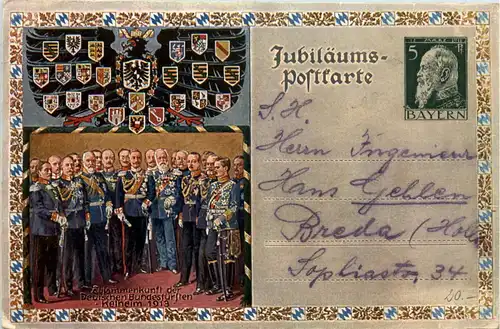 Jubiläums-
Postkarte
5
BAYERN
S. H.
Herrn Ingenieur
Hans Gehlen
Breda (Hol
Sophiastr. 34
20.-
Zusammenkunft der
Deutschen Bundesfürsten
Kelheim 1913